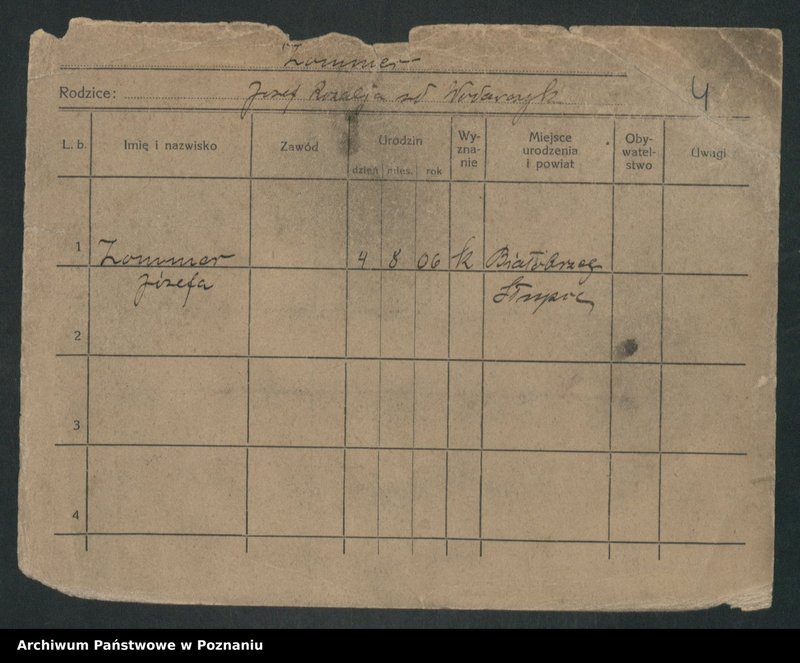 Zommer
Rodzice: Józef Rozalja zd Wodarczyk
4
L. b. Imię i nazwisko Zawód Urodzin Wyznanie Miejsce urodzenia i powiat Obywatelstwo Uwagi
dzień mies. rok
1 Zommer 4 8 06 k Białobrzeg
Józefa Słupca
2
3
4
Archiwum Państwowe w Poznaniu